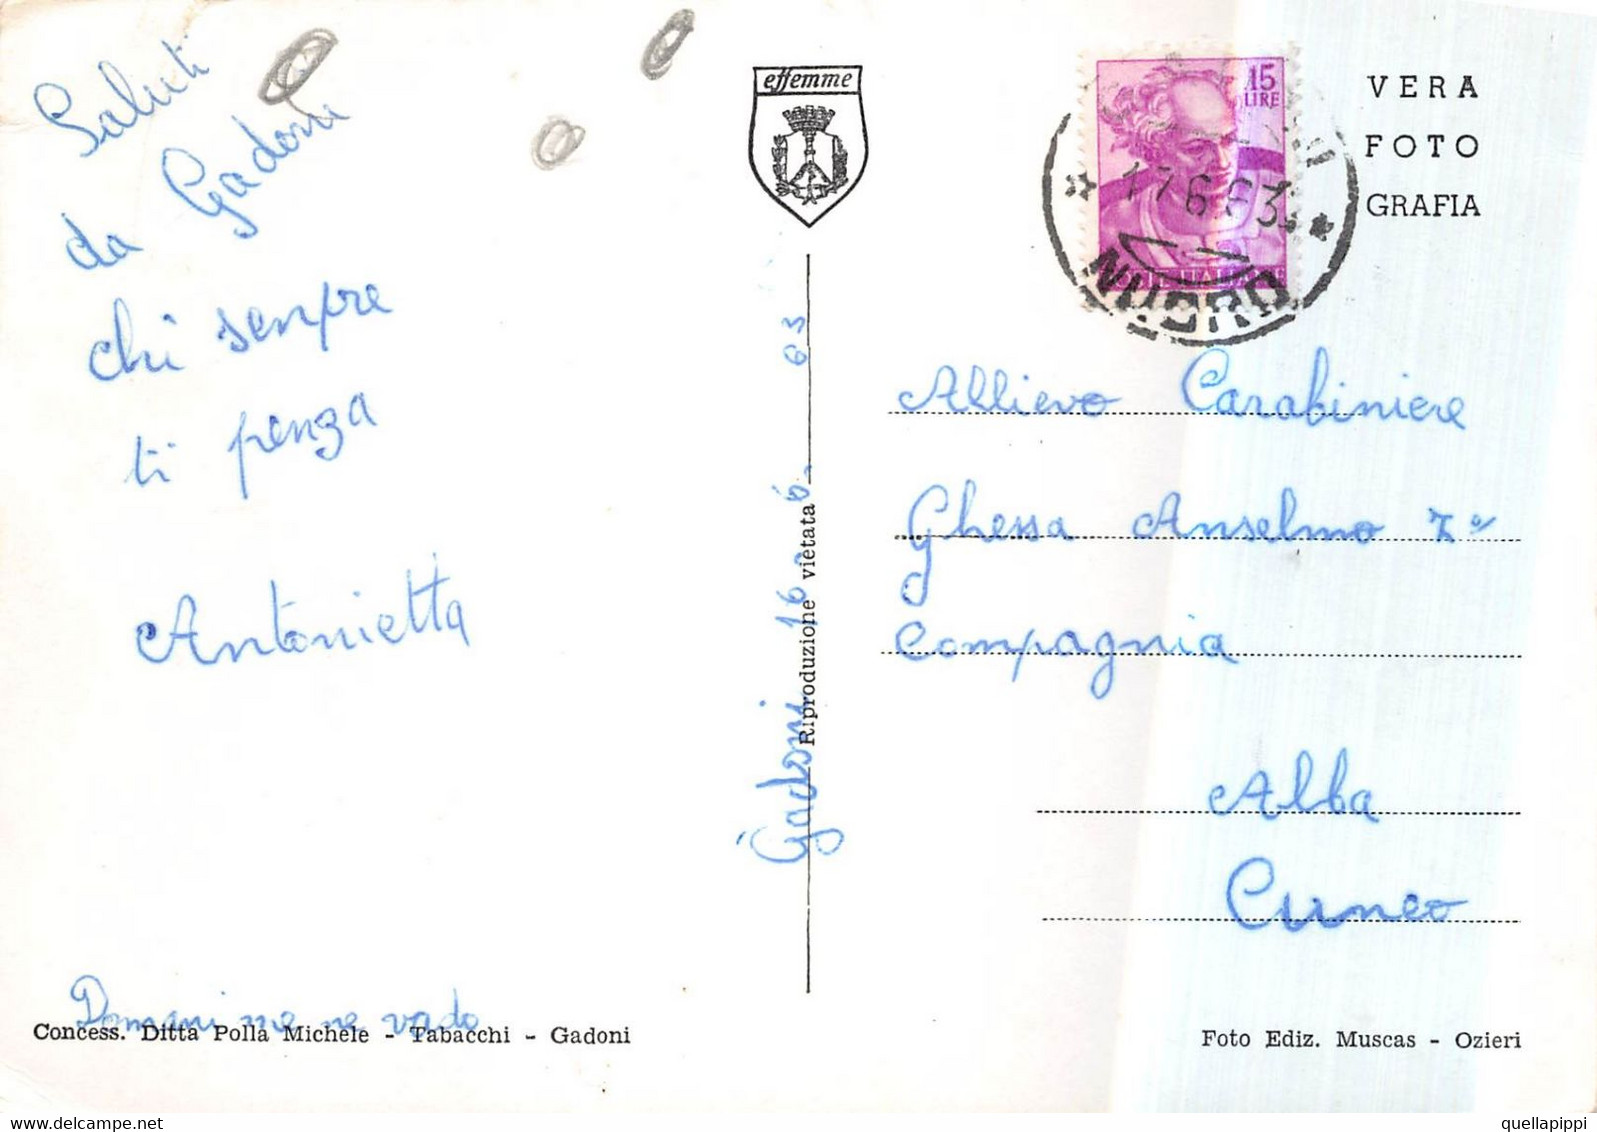 Saluti
da Gadoni
chi senpre
ti penza
Antonietta
Domani me ne vado
Concess. Ditta Polla Michele - Tabacchi - Gadoni
effemme
Riproduzione vietata
Gadoni 16 6. 63
15
LIRE
17 6 63
NUORO
VERA
FOTO
GRAFIA
Allievo Carabiniere
Ghessa Anselmo 7º
Compagnia
Alba
Cuneo
Foto Ediz. Muscas - Ozieri
quellapippi